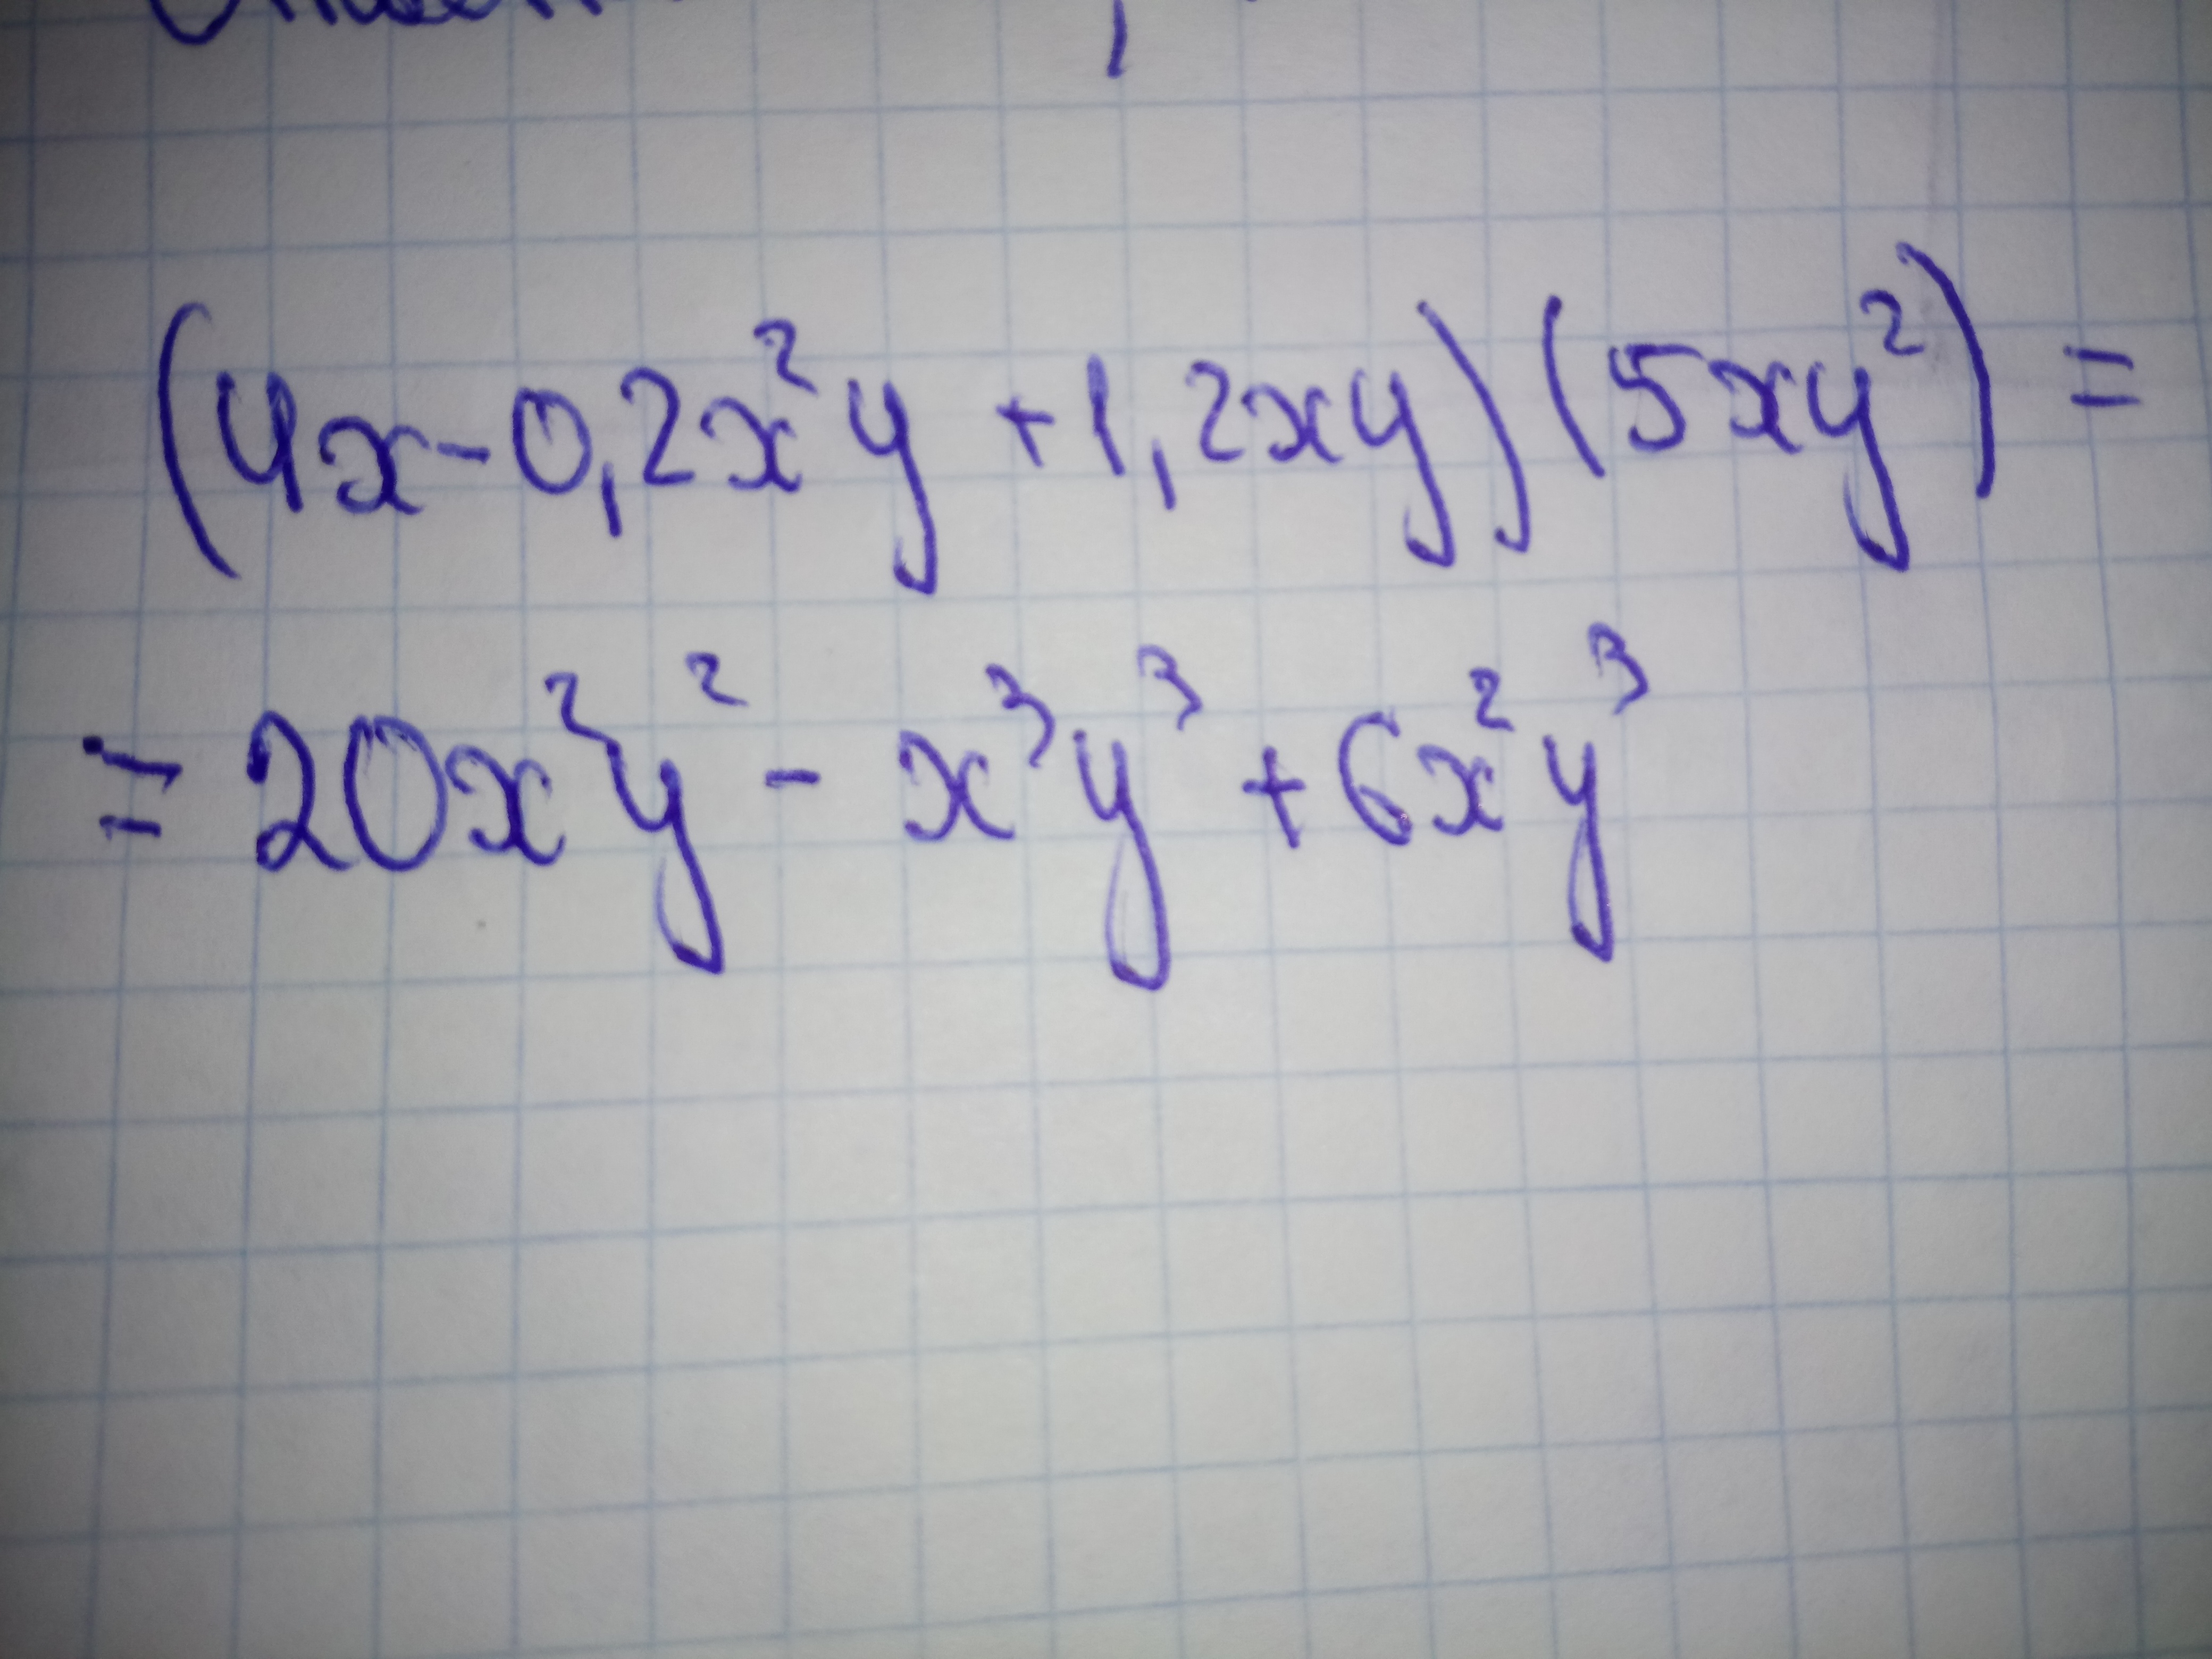 (4x-0,2x²y+1,2xy)(5xy²)=
=20x²y²-x³y³+6x²y³